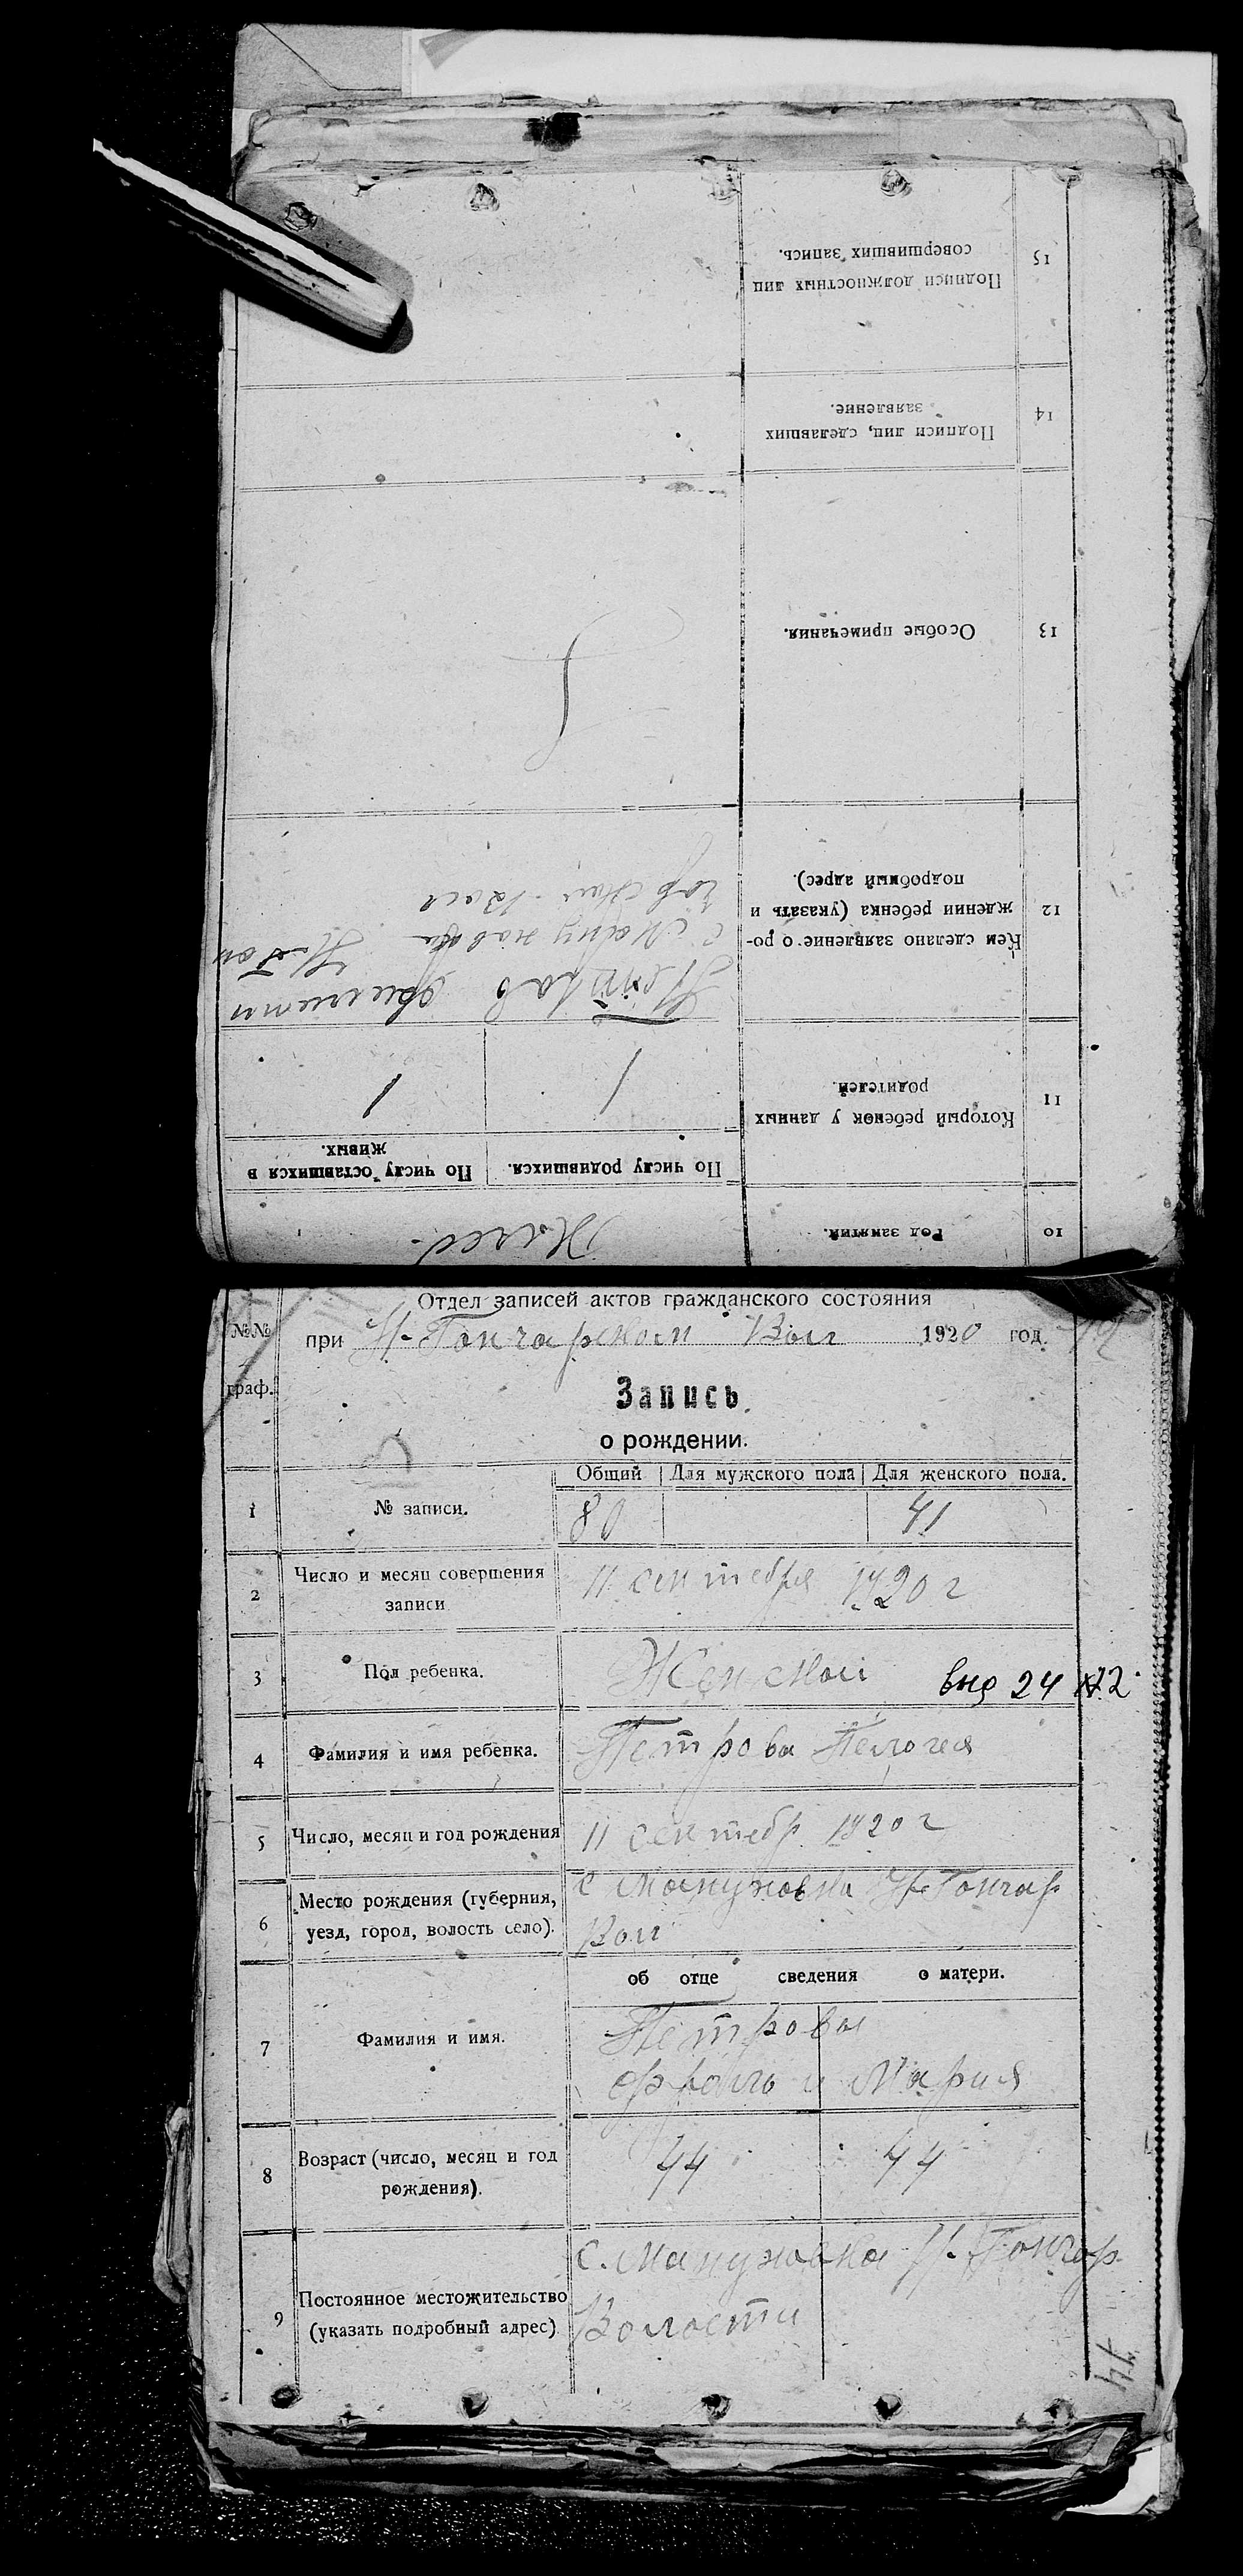 Отдел записей актов гражданского состояния
№№ граф.
при Н-Гончарском Вол 1920 год.
Запись
о рождении.
Общий Для мужского пола Для женского пола.
1 № записи. 80 41
2 Число и месяц совершения записи 11 сентебря 1920 г
3 Пол ребенка. Женской
выд 24
4 Фамилия и имя ребенка. Петрова Пелогея
5 Число, месяц и год рождения 11 сентебр 1920 г
6 Место рождения (губерния, уезд, город, волость село). с Н-Гончар
Вол
об отце сведения о матери.
7 Фамилия и имя. Петровы
и Мария
8 Возраст (число, месяц и год рождения). 44 44
9 Постоянное местожительство (указать подробный адрес) с. Н. Гончар
Волости
10 Род занятий. Хлеб.
По числу родившихся. По числу оставшихся в живых.
11 Который ребенок у данных родителей. 1 1
12 Кем сделано заявление о рождении ребенка (указать и подробный адрес). Петров
13 Особые примечания.
14 Подписи лиц, сделавших заявление.
15 Подписи должностных лиц совершивших запись.